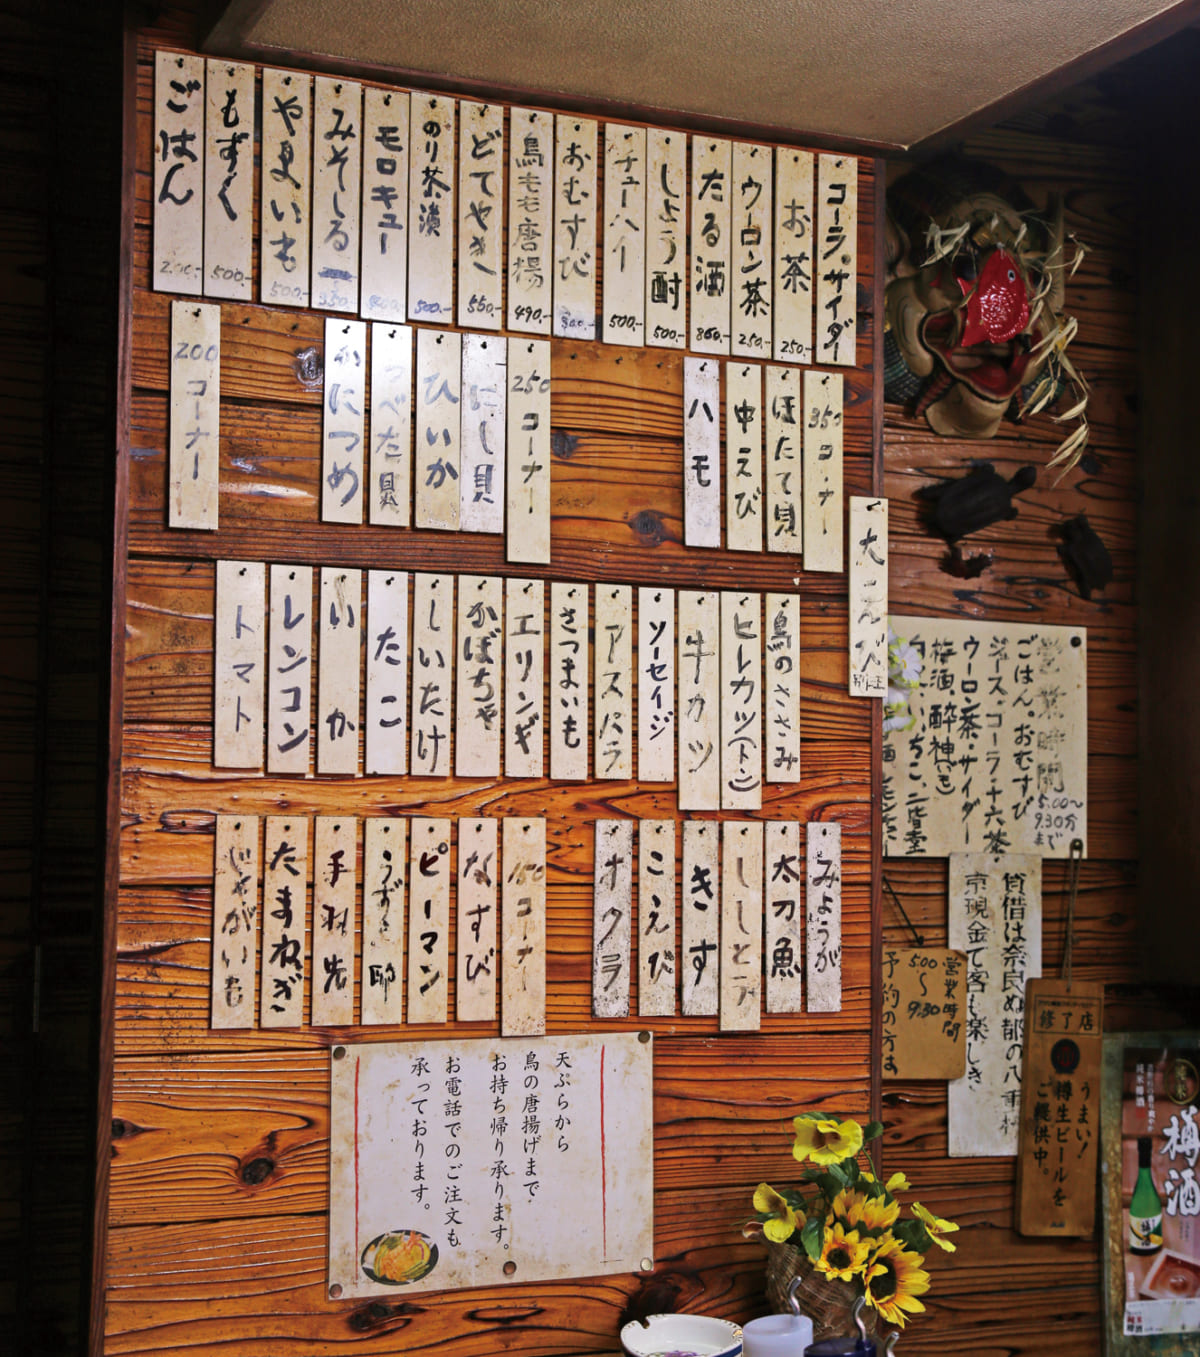 コーラ・サイダー
お茶 250.-
ウーロン茶 250.-
たる酒 860.-
しょう酎 500.-
チューハイ 500.-
おむすび
鳥もも唐揚 490.-
どてやき 550.-
のり茶漬 500.-
モロキュー
みそしる
やまいも 500.-
もずく 500.-
ごはん 200.-
350コーナー
ほたて貝
中えび
ハモ
250コーナー
にし貝
ひいか
つべた貝
かにつめ
200コーナー
大えび
鳥のささみ
ヒレカツ(トン)
牛カツ
ソーセイジ
アスパラ
さつまいも
エリンギ
かぼちゃ
しいたけ
たこ
いか
レンコン
トマト
みょうが
太刀魚
ししとう
きす
こえび
オクラ
150コーナー
なすび
ピーマン
うずら卵
手羽先
たまねぎ
じゃがいも
天ぷらから
鳥の唐揚げまで
お持ち帰り承ります。
お電話でのご注文も
承っております。
営業時間
5.00〜
9.30分
まで
ごはん。おむすび
ジュース。コーラ・十六茶・
ウーロン茶・サイダー
梅酒、酔神(も)
いちこ、二階堂
貸借は奈良ぬ都の八重桜
京現金て客も楽しき
営業時間
5.00
〜
9.30
予約の方は
修了店
うまい!
樽生ビールを
ご提供中。
樽酒